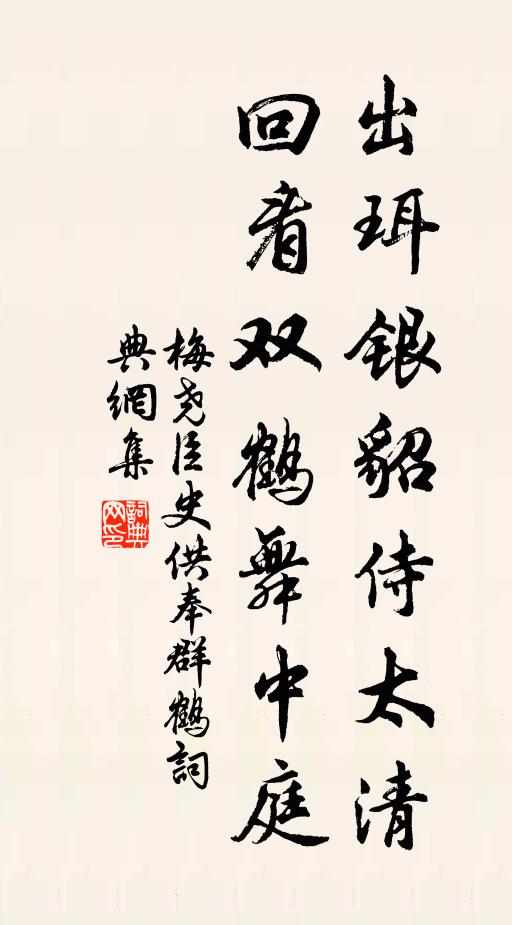 出珥銀貂侍太清
回看双鶴舞中庭
梅尧臣史供奉群鶴詞
典網集
詞典
网印